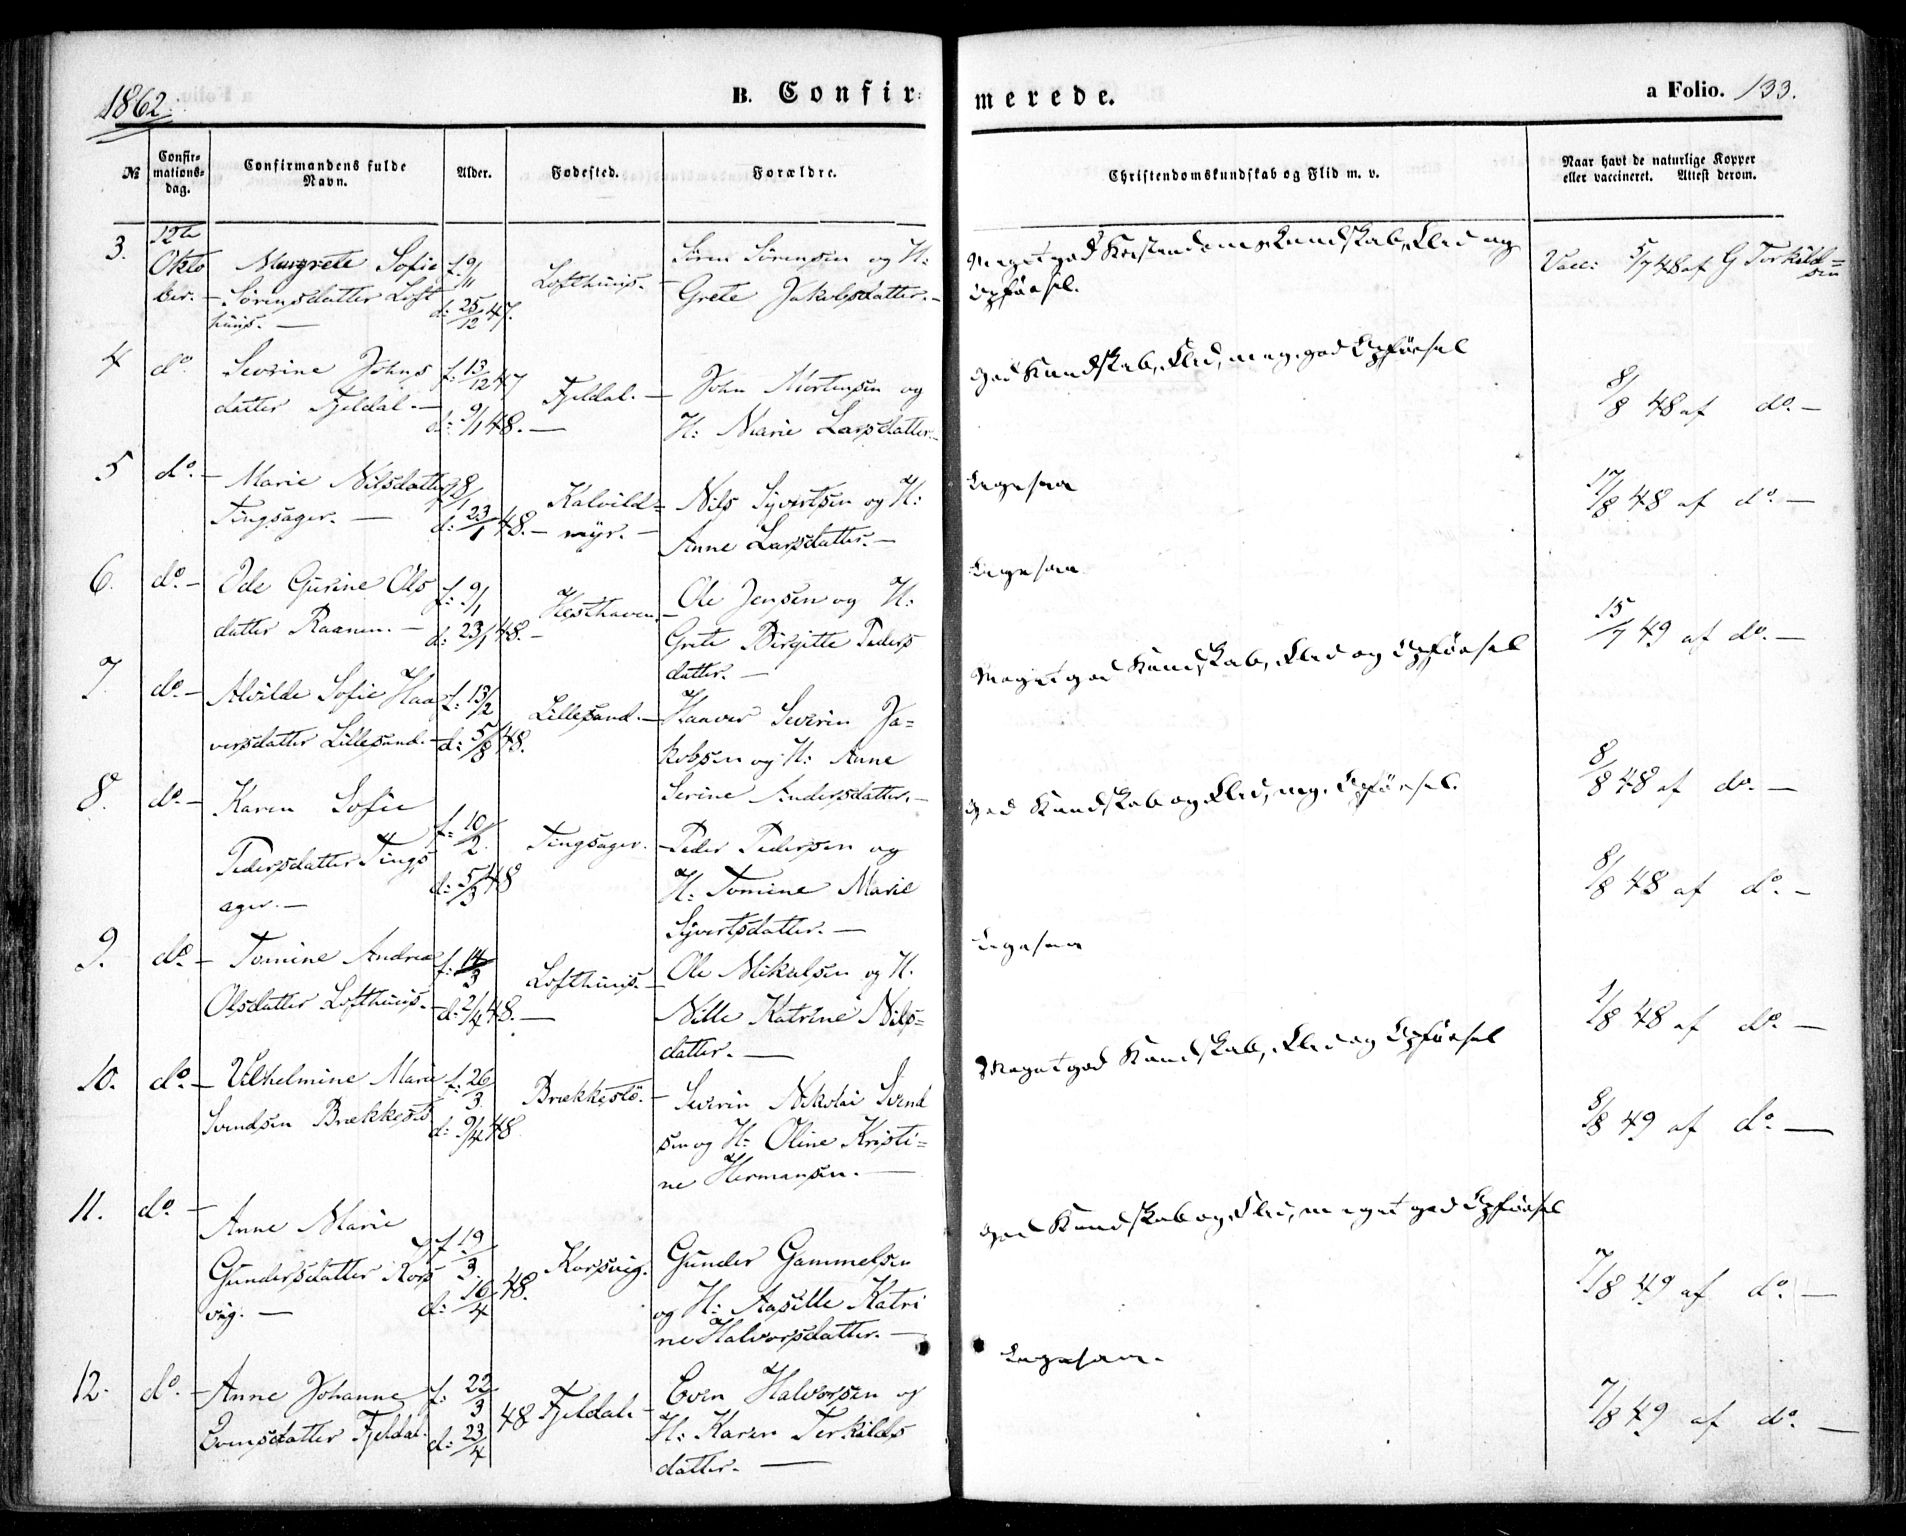 1862.
B. Confir-
merede.
a Folio. 133.
№
Confir-
mations-
dag.
Confirmandens fulde
Navn.
Alder.
Fødested.
Forældre.
Christendomskundskab og Flid m. v.
Naar havt de naturlige Kopper
eller vaccineret. Attest derom.
3. 12te
Okto
ber. -
Margrete Sofie
Sörensdatter Loft
huus. -
f: 9/11
d: 25/12 47.
Lofthuus. -
Sören Sörensen og H:
Grete Jakobsdatter. -
Meget god Kristendomskundskab, Flid og
Opförsel.
Vacc: 5/7 48 af G Torkild=
sen
4 do.
Severine Johns
datter Fjeldal. -
f: 13/12 47
d: 9/1 48. -
Fjeldal. -
John Mortensen og
H: Marie Larsdatter. -
God Kundskab, Flid, meg. god Opförsel
8/8 48 af do. -
5 do. -
Marie Nilsdatter
Tingsager. -
d: 23/1 48. -
Kalvild=
myr. -
Nils Syvertsen og H:
Anne Larsdatter. -
Ligesaa
17/8 48 af do. -
6. do. -
Ode Gurine Ols
datter Raanen. -
f: 9/1
d: 23/1 48. -
Hesthaven. -
Ole Jensen og H:
Grete Birgitte Peders
datter. -
Ligesaa
15/7 49 af do. -
7. do. -
Alvilde Sofie Haa
versdatter Lillesand. -
f: 13/2
d: 5/8 48.
Lillesand. -
Haaver Severin Ja=
kobsen og H: Anne
Serine Andersdatter. -
Meget god Kundskab, Flid og Opförsel
8/8 48 af do. -
8. do. -
Karen Sofie
Pedersdatter Tings
ager. -
f: 10/2.
d: 5/3 48
Tingsager. -
Peder Pedersen og
H: Tomine Marie
Syvertsdatter. -
God Kundskab og Flid, meg. Opförsel.
8/8 48 af do. -
9. do. -
Tomine Andrea
Olsdatter Lofthuus. -
f: 14/3
d: 2/4 48. -
Lofthuus. -
Ole Mikalsen og H.
Nille Katrine Nils=
datter. -
Ligesaa
1/8 48 af do. -
10. do. -
Vilhelmine Marie
Svendsen Brækkestö
f: 26/3.
d: 9/4 48
Brækkestö. -
Severin Nikolai Svend
sen og H: Oline Kristi=
ne Hermansen. -
Meget god Kundskab, Flid og Opförsel
8/8 49 af do. -
11. do. -
Anne Marie
Gundersdatter Kors
vig. -
f: 19/3.
d: 16/4 48.
Korsvig.
Gunder Gammelsen
og H: Aasille Katri
ne Halvorsdatter. -
God Kundskab og Flid, meget god Opförsel
7/8 49 af do. -
12. do. -
Anne Johanne
Evensdatter Fjeldal.
f: 22/3
d: 23/4 48
Fjeldal. -
Even Halvorsen og
H: Karen Terkilds
datter. -
Ligesaa. -
7/8 49 af do. -